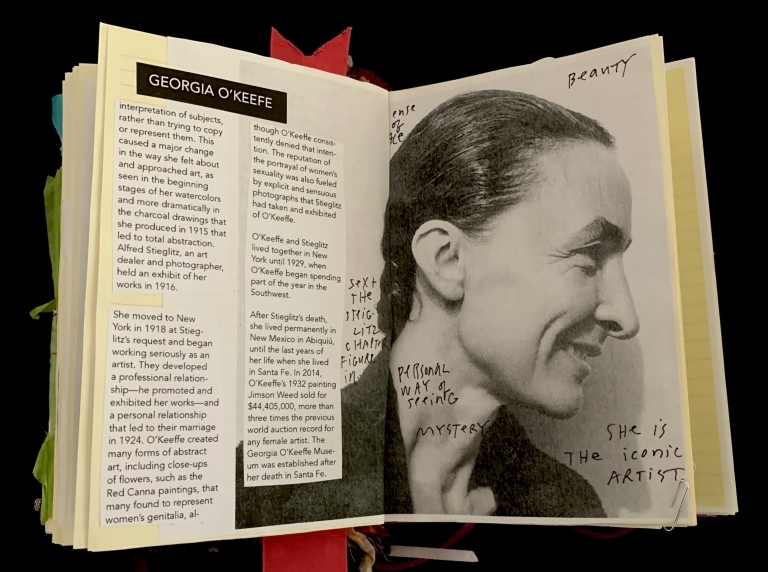 GEORGIA O'KEEFE
interpretation of subjects,
rather than trying to copy
or represent them. This
caused a major change
in the way she felt about
and approached art, as
seen in the beginning
stages of her watercolors
and more dramatically in
the charcoal drawings that
she produced in 1915 that
led to total abstraction.
Alfred Stieglitz, an art
dealer and photographer,
held an exhibit of her
works in 1916.
She moved to New
York in 1918 at Stieg-
litz's request and began
working seriously as an
artist. They developed
a professional relation-
ship—he promoted and
exhibited her works—and
a personal relationship
that led to their marriage
in 1924. O'Keeffe created
many forms of abstract
art, including close-ups
of flowers, such as the
Red Canna paintings, that
many found to represent
women's genitalia, al-
though O'Keeffe consis-
tently denied that inten-
tion. The reputation of
the portrayal of women's
sexuality was also fueled
by explicit and sensuous
photographs that Stieglitz
had taken and exhibited
of O'Keeffe.
O'Keeffe and Stieglitz
lived together in New
York until 1929, when
O'Keeffe began spending
part of the year in the
Southwest.
After Stieglitz's death,
she lived permanently in
New Mexico in Abiquiú,
until the last years of
her life when she lived
in Santa Fe. In 2014,
O'Keeffe's 1932 painting
Jimson Weed sold for
$44,405,000, more than
three times the previous
world auction record for
any female artist. The
Georgia O'Keeffe Muse-
um was established after
her death in Santa Fe.
SEXT
THE
STEIG-
LITZ
CHAPTR
FIGURE
in
ense
of
BEAUTY
PERSONAL
WAY of
seeinG
MYSTERY
SHE iS
THE iconic
ARTIST.